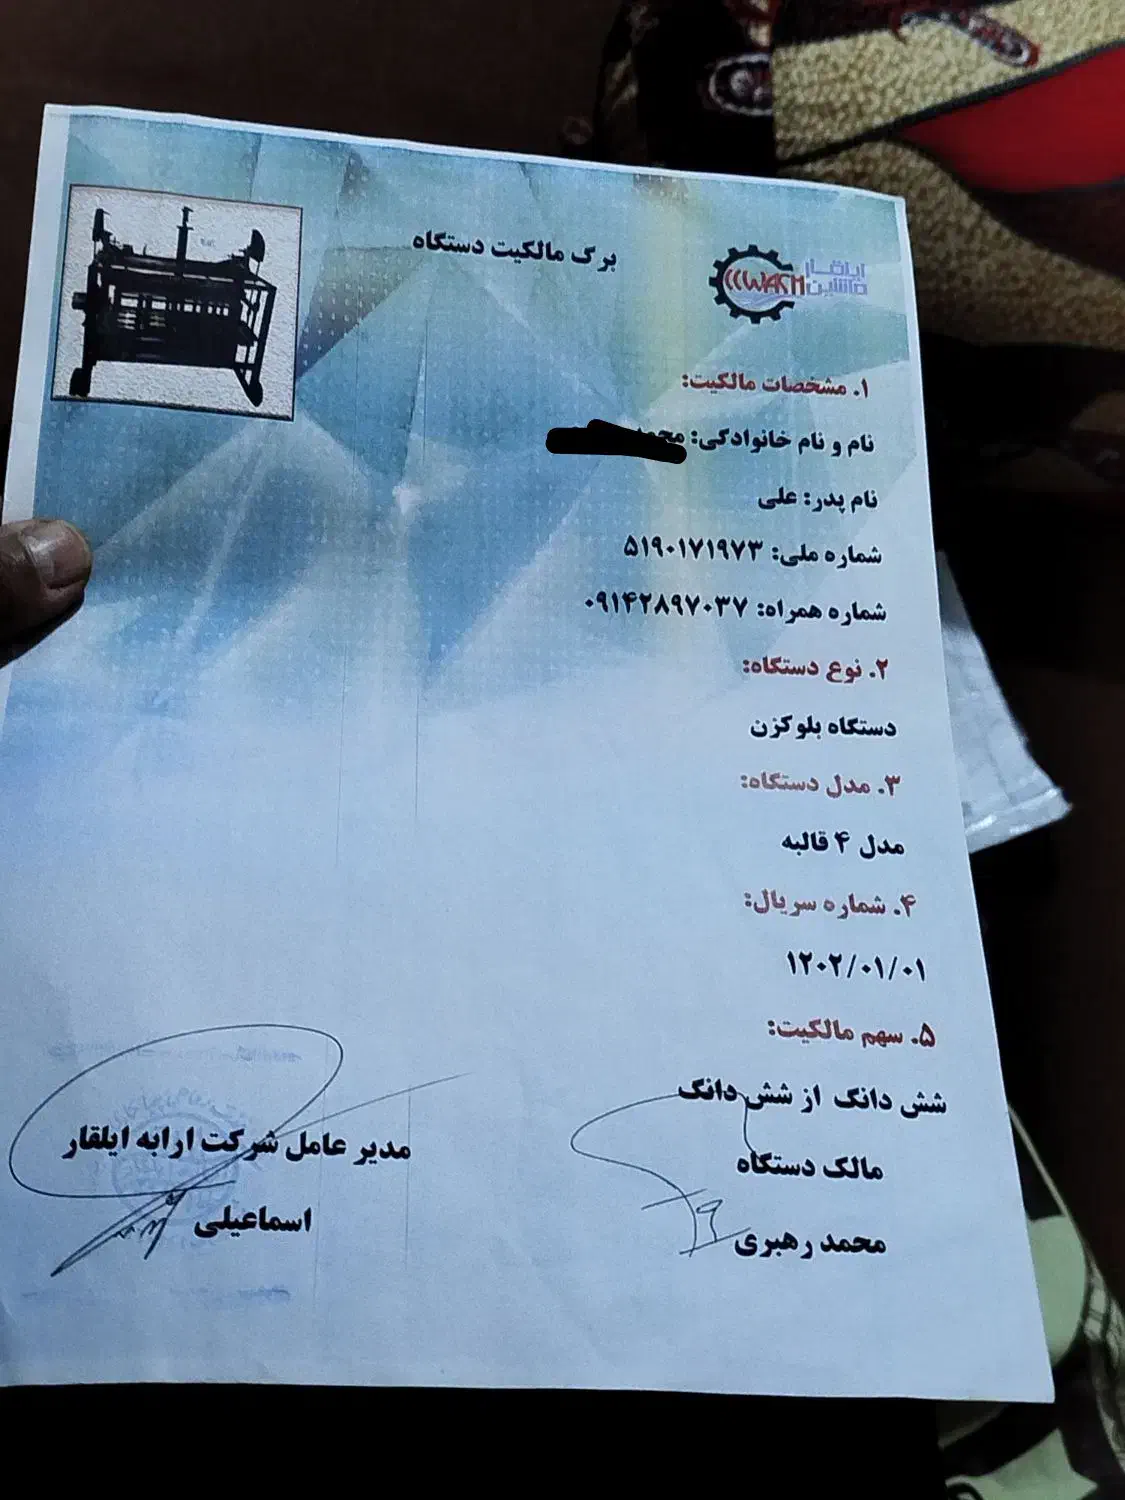 برگ مالکیت دستگاه
ایلقار
ماشین
۱. مشخصات مالکیت:
نام و نام خانوادگی:
نام پدر: علی
شماره ملی: ۵۱۹۰۱۷۱۹۷۳
شماره همراه: ۰۹۱۴۲۸۹۷۰۳۷
۲. نوع دستگاه:
دستگاه بلوکزن
۳. مدل دستگاه:
مدل ۴ قالبه
۴. شماره سریال:
۱۲۰۲/۰۱/۰۱
۵. سهم مالکیت:
شش دانگ از شش دانگ
مالک دستگاه
محمد رهبری
مدیر عامل شرکت ارابه ایلقار
اسماعیلی